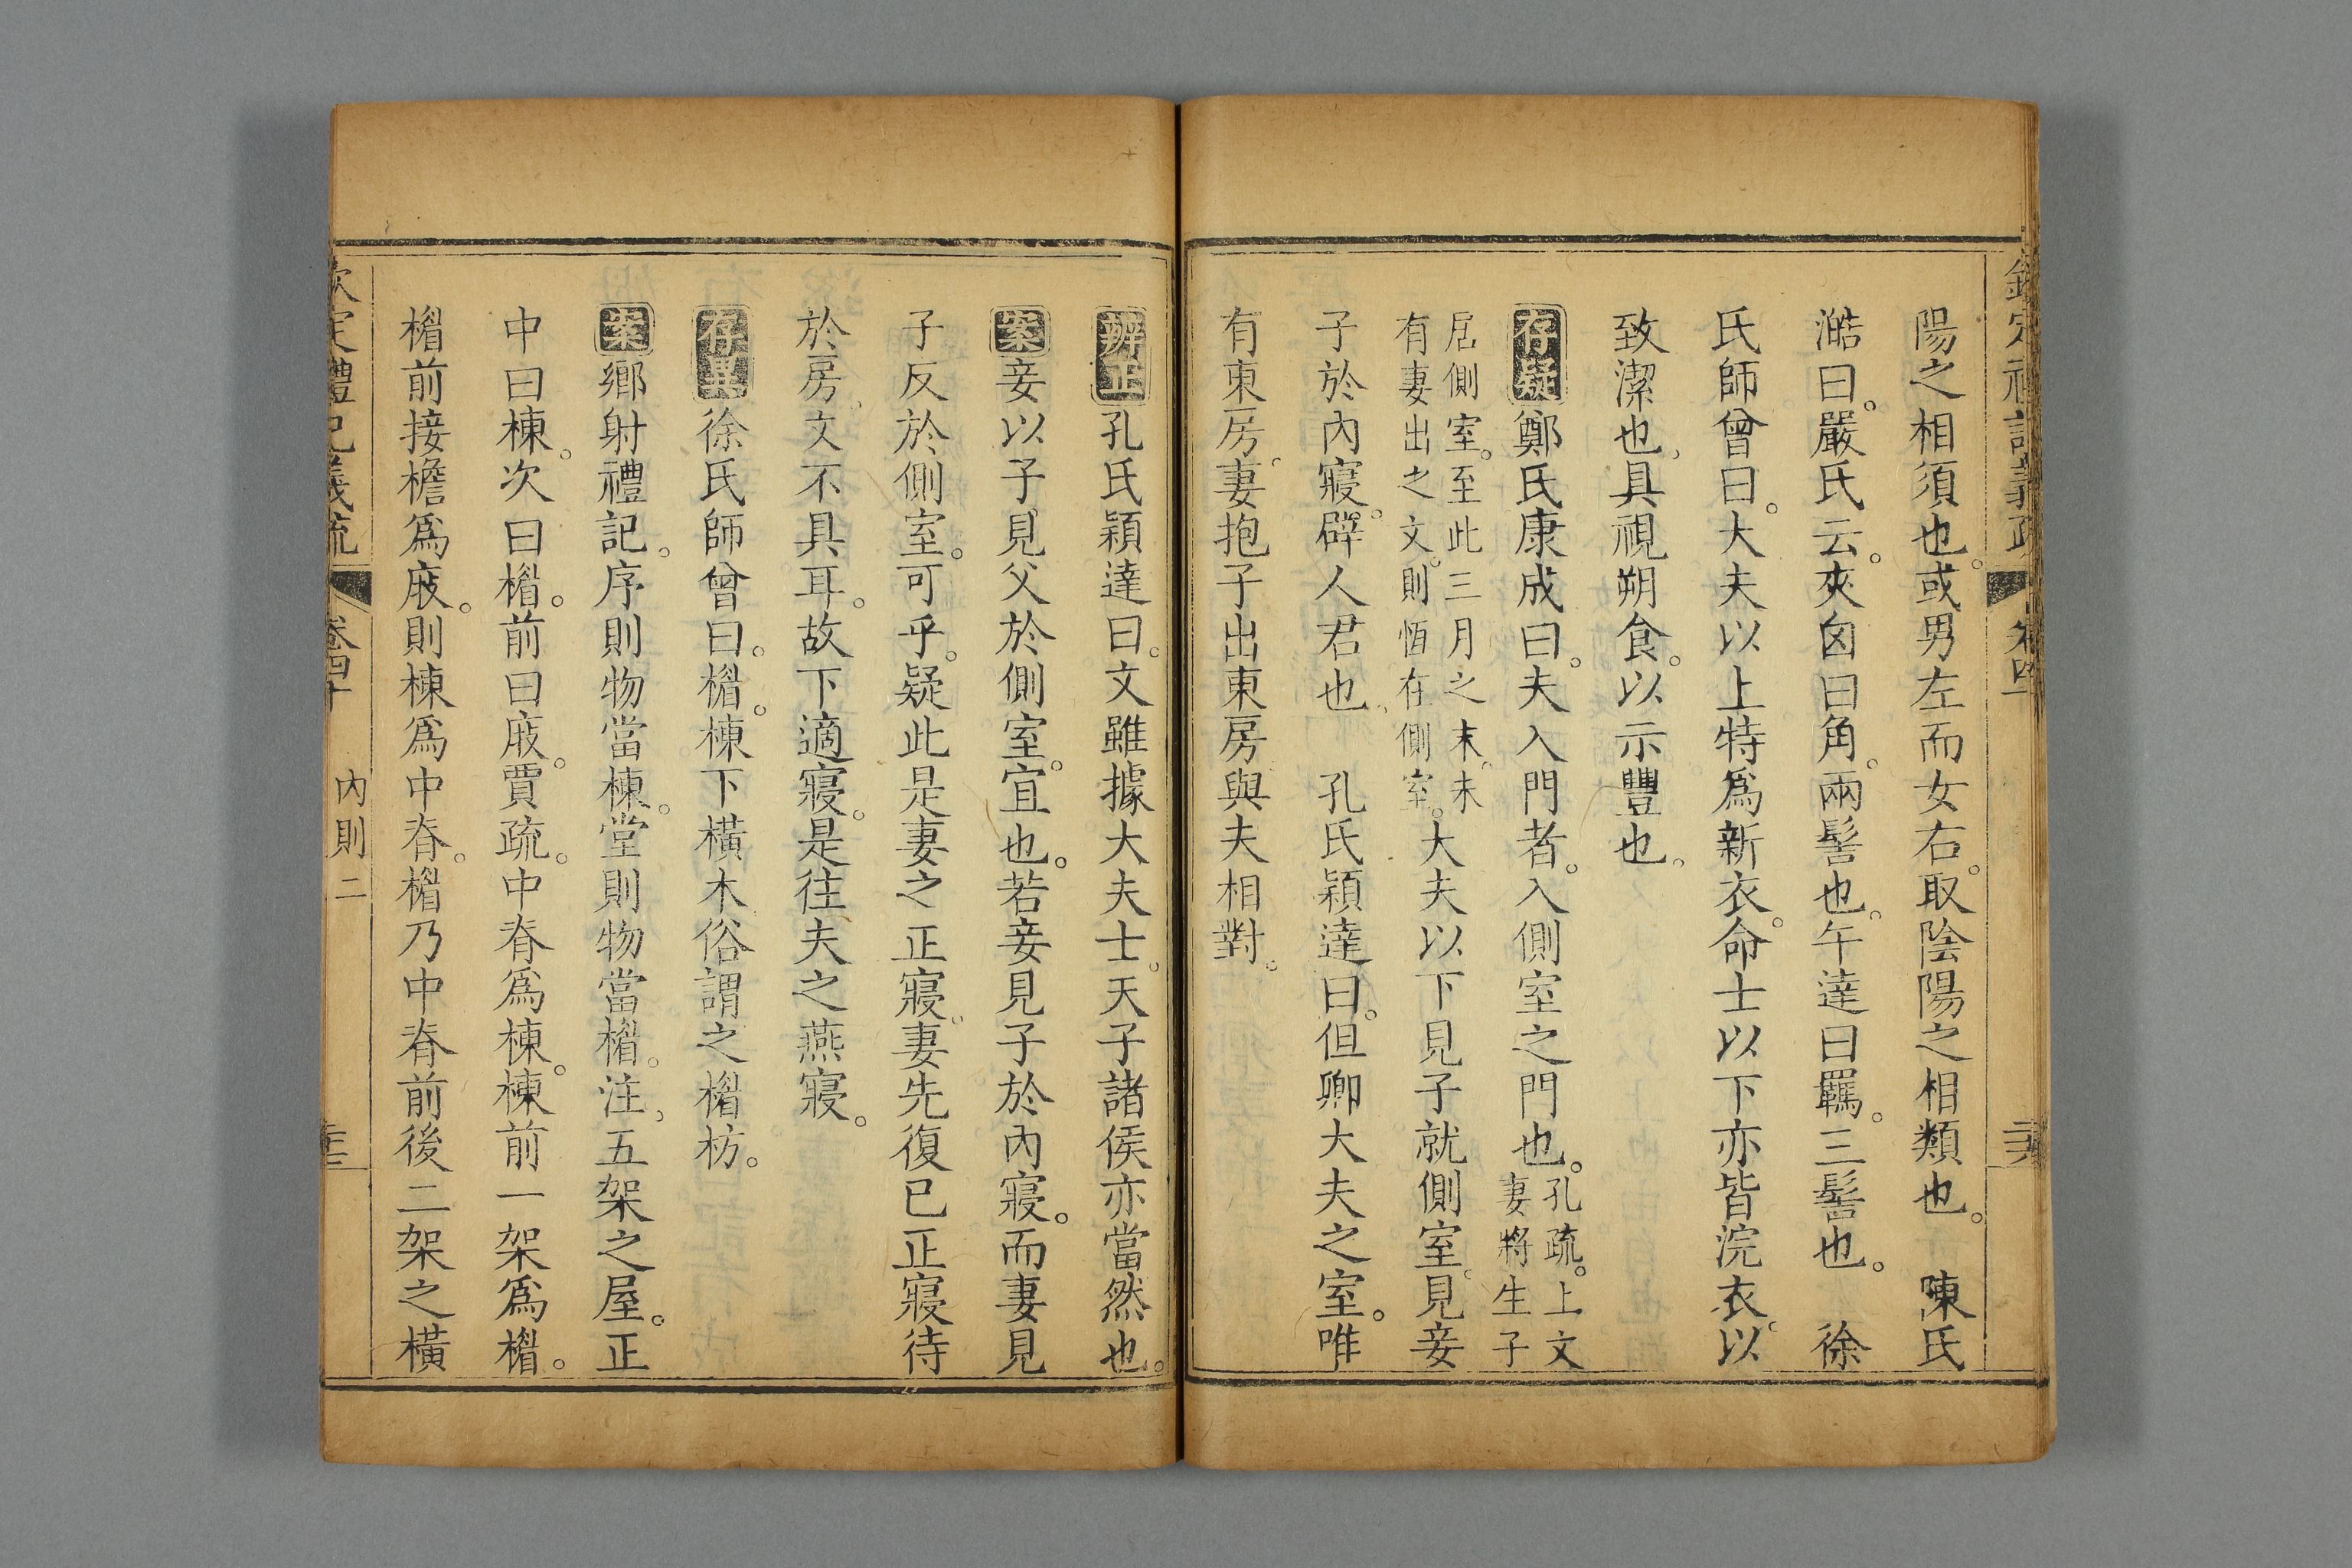 陽之相須也。或男左而女右。取陰陽之相類也。　陳氏
澔曰。嚴氏云。夾囟曰角。兩髻也。午達曰羈。三髻也。　徐
氏師曾曰。大夫以上特爲新衣。命士以下亦皆浣衣。以
致潔也、具視朔食。以示豐也。
存疑鄭氏康成曰。夫入門者。入側室之門也。孔疏。上文妻將生子
居側室。至此三月之末。未有妻出之文。則恆在側室。大夫以下見子就側室。見妾
子於內寢。辟人君也、　孔氏穎達曰。但卿大夫之室。唯
有東房。妻抱子出東房與夫相對。
辨正孔氏穎達曰。文雖據大夫士。天子諸侯亦當然也。
案妾以子見父於側室。宜也。若妾見子於內寢。而妻見
子反於側室。可乎。疑此是妻之正寢。妻先復已正寢待
於房、文不具耳。故下適寢。是往夫之燕寢。
存異徐氏師曾曰。楣。棟下橫木俗謂之楣枋。
案鄉射禮記。序則物當棟。堂則物當楣。注、五架之屋。正
中曰棟。次曰楣。前曰庪。賈疏。中脊爲棟。棟前一架爲楣。
楣前接檐爲庪。則棟爲中脊。楣乃中脊前後二架之橫
欽定禮記義疏　卷四十　內則二